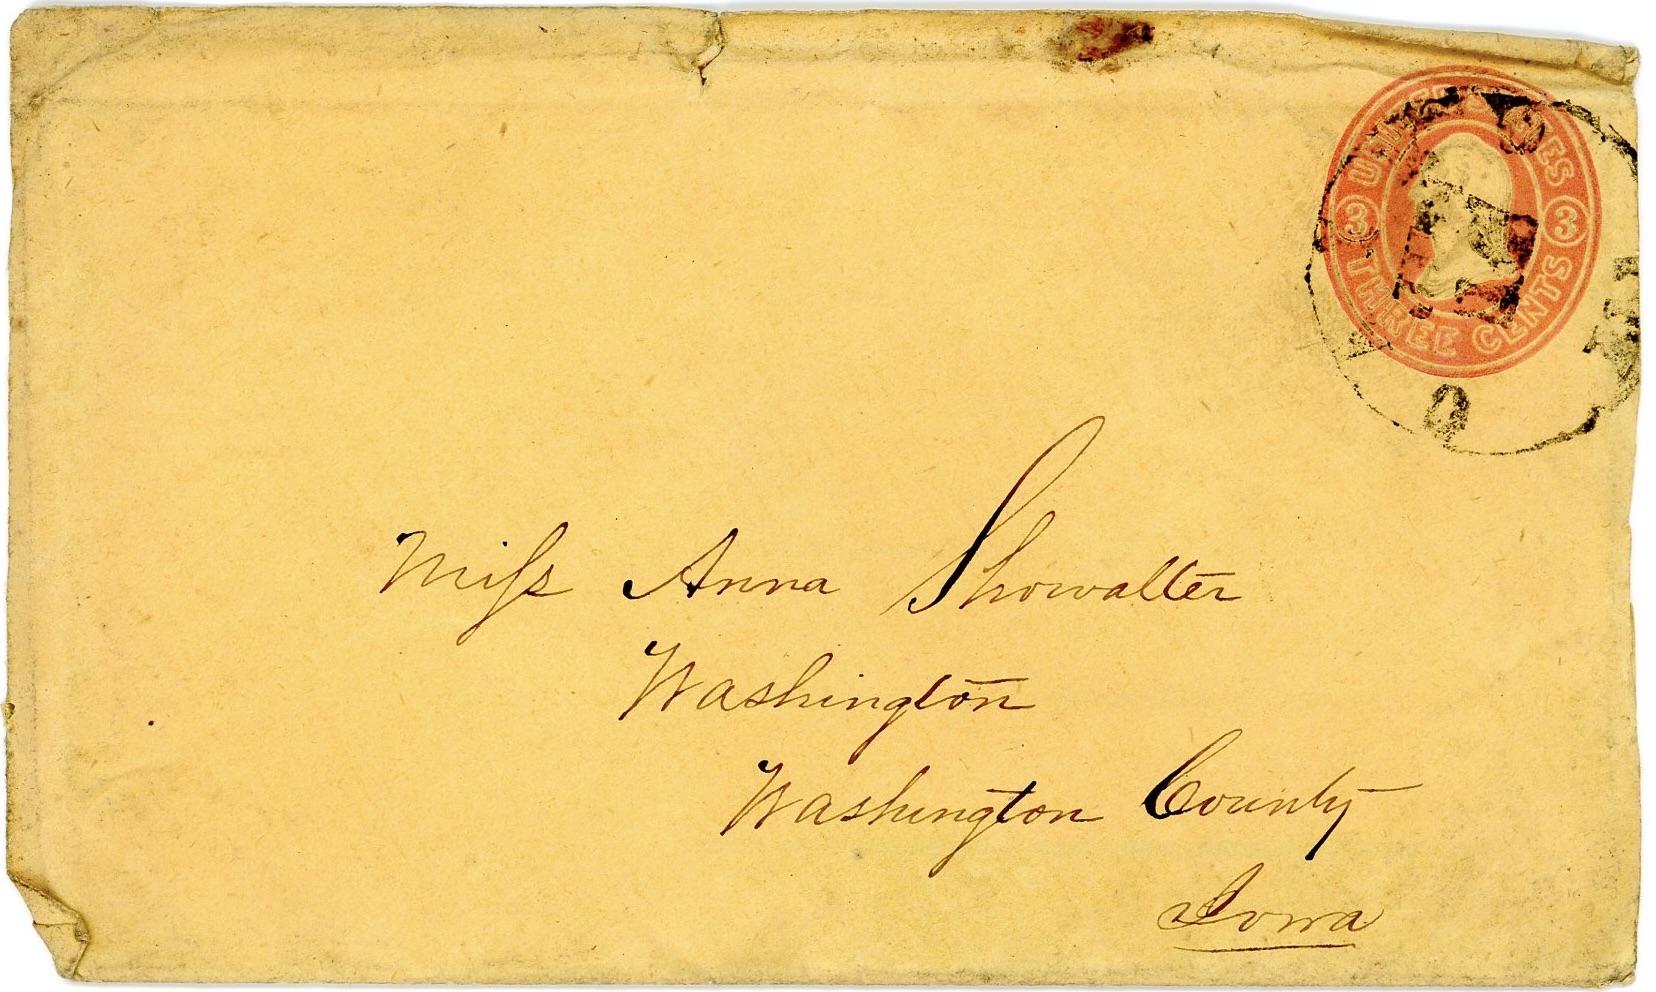 UNITED STATES
3 3
THREE CENTS
Miſs Anna Showalter
Washington
Washington County
Iowa